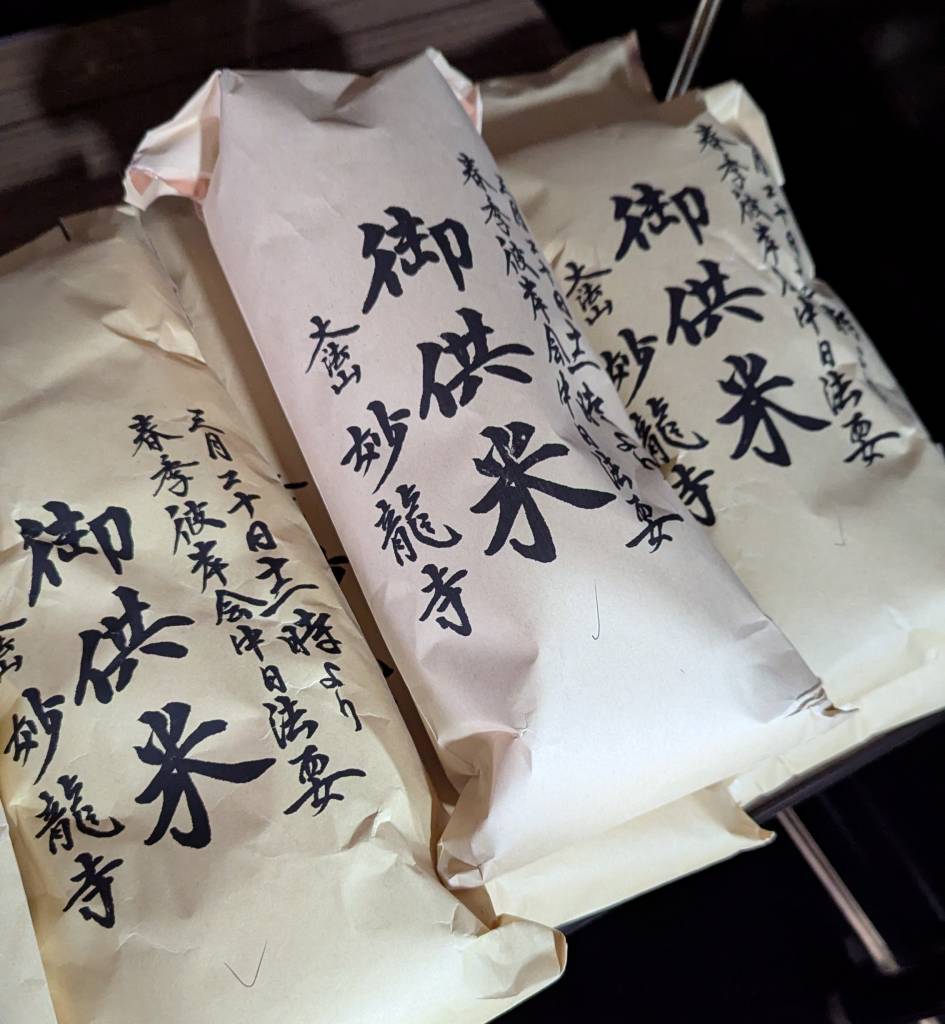 三月二十日十一時より
春季彼岸会中日法要
御供米
妙龍寺
三月二十日十一時より
春季彼岸会中日法要
御供米
大法山
妙龍寺
月二十日
春季彼岸会中日法要
御供米
大法山
妙龍寺